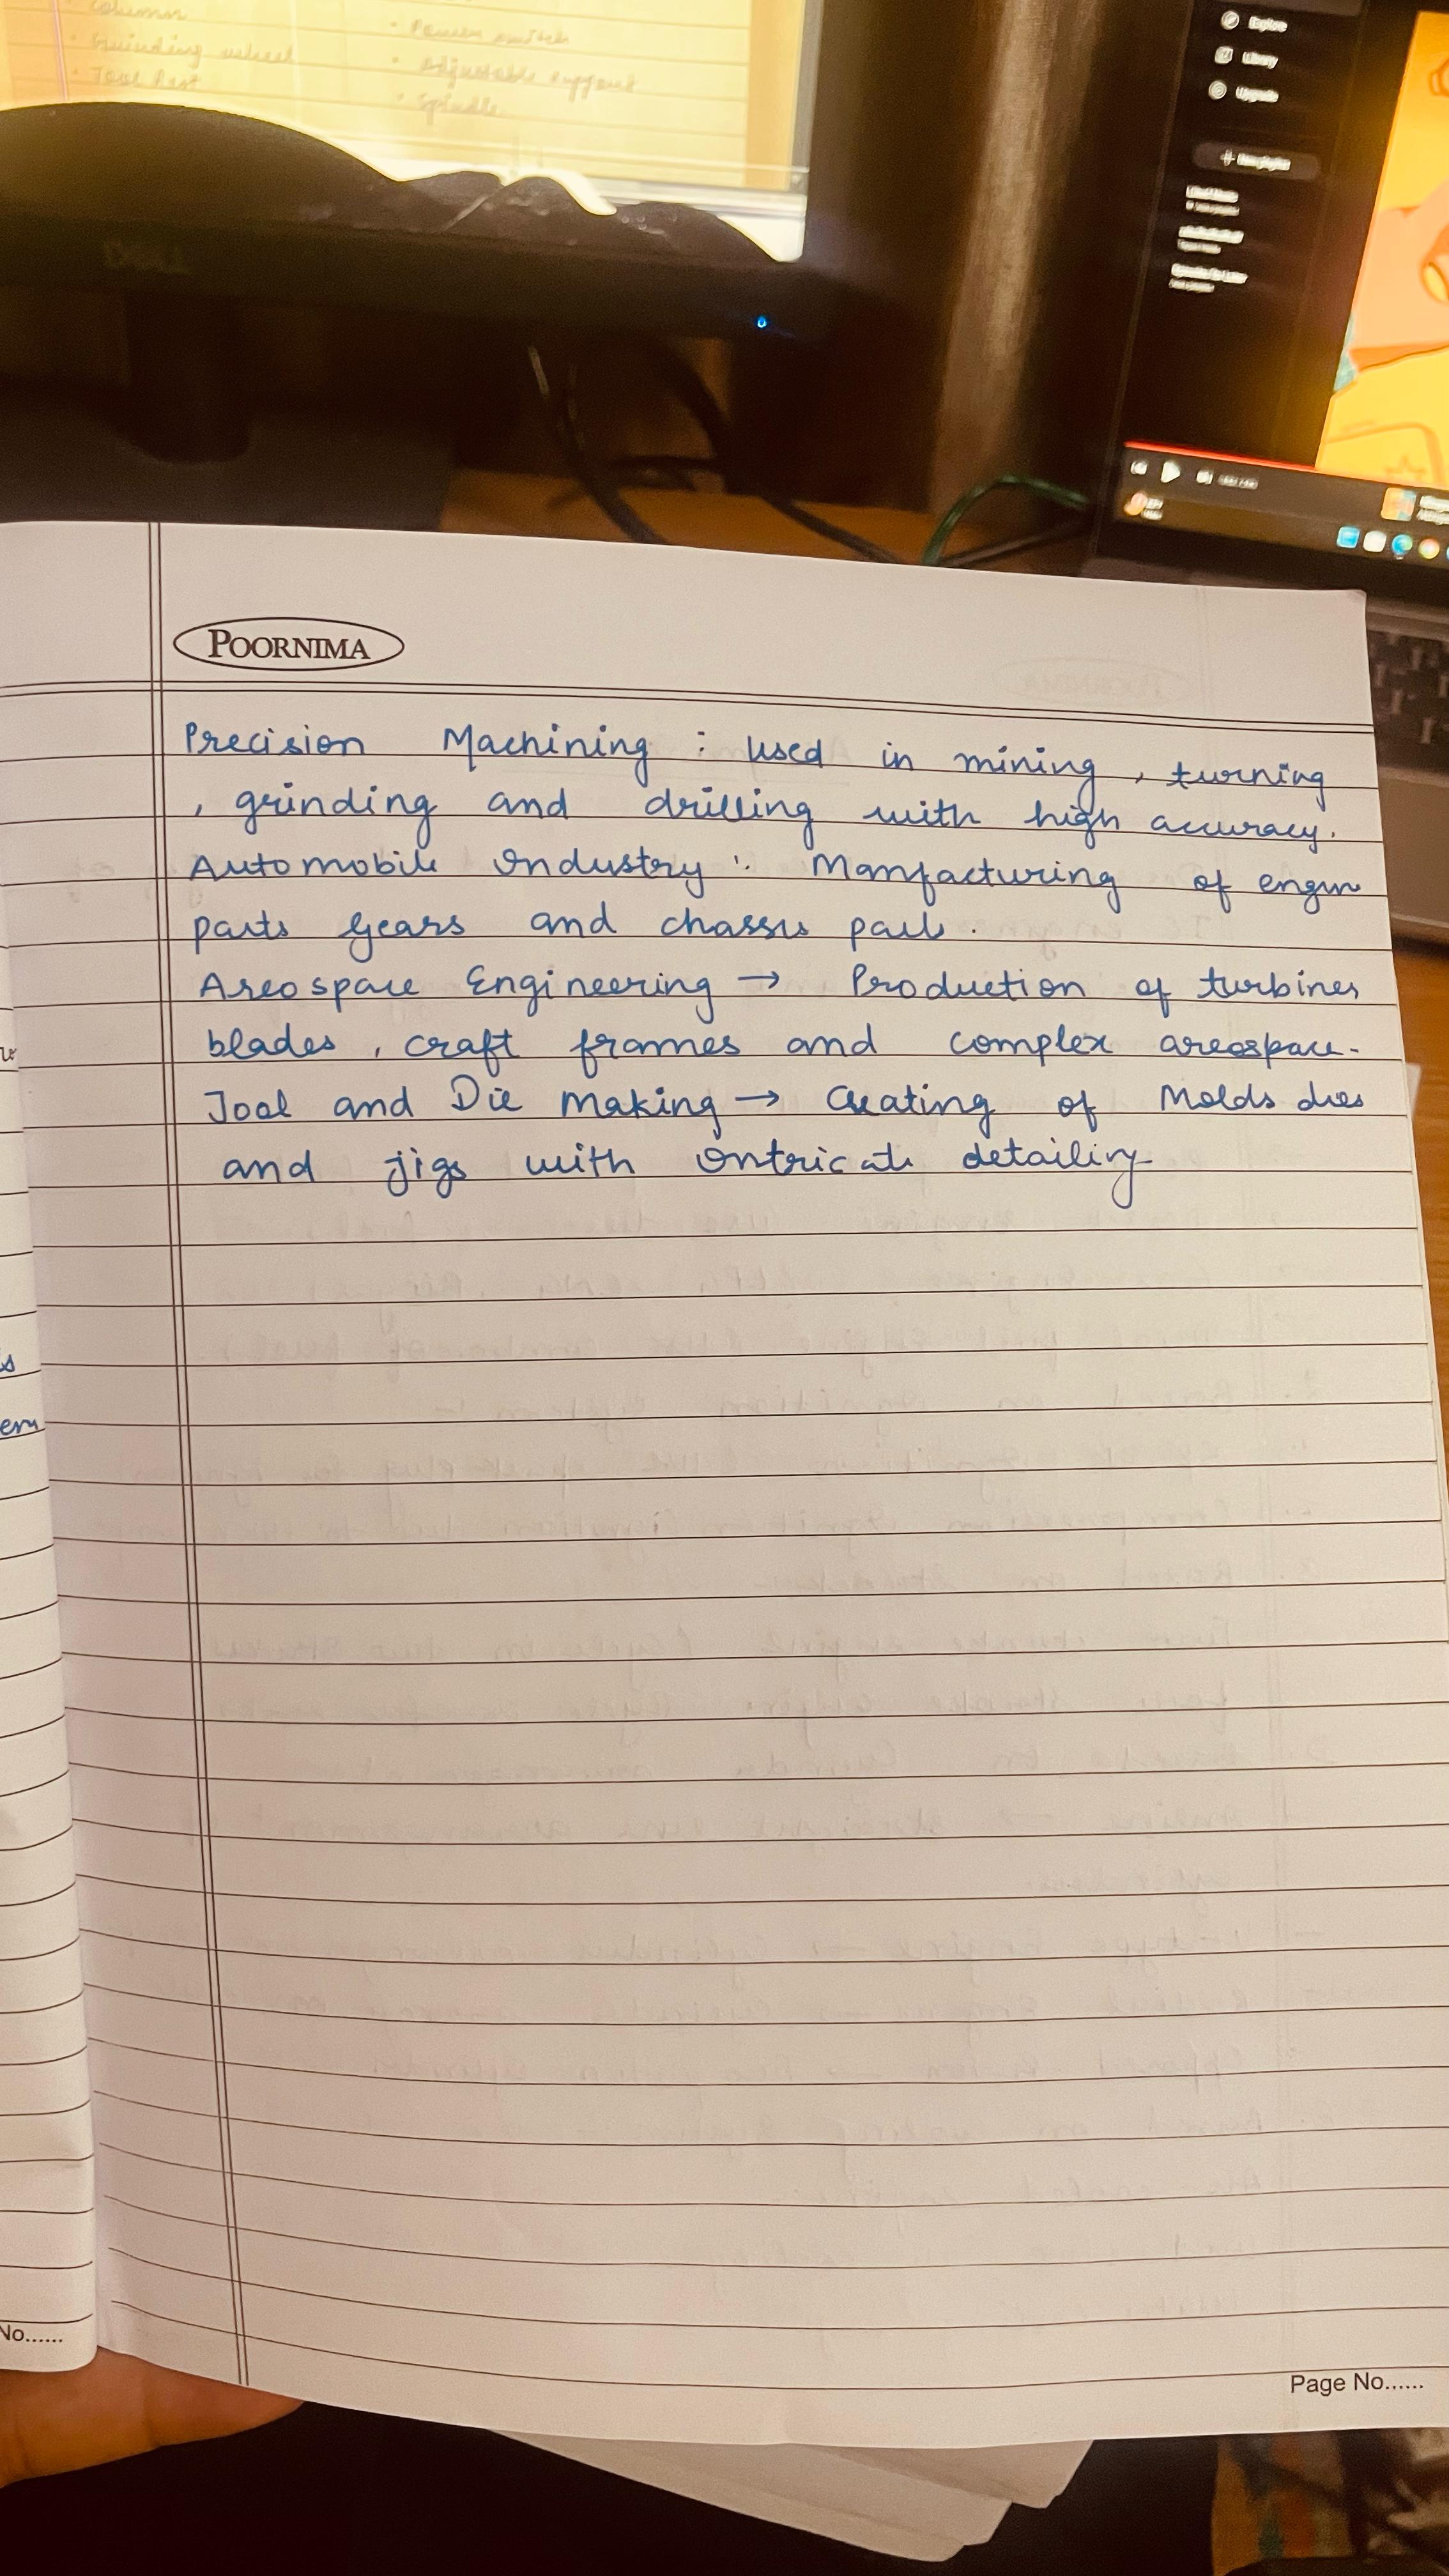 Column
Grinding wheel
Tool Rest
Power switch
Adjustable support
Spindle
Explore
Library
Upgrade
DELL
POORNIMA
Precision Machining : used in mining , turning
, grinding and drilling with high accuracy.
Automobile Industry : Manfacturing of engin
parts gears and chassis parts.
Areospace Engineering → Production of turbines
blades , craft frames and complex areospace.
Tool and Die Making → Creating of Molds dies
and jigs with intricate detailing
em
No......
Page No......